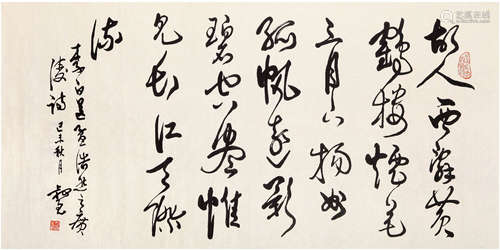 故人西辭黃
鶴樓煙花
三月下揚州
孤帆遠影
碧空盡惟
見長江天際
流
李白送孟浩然之廣
陵詩 己未秋月